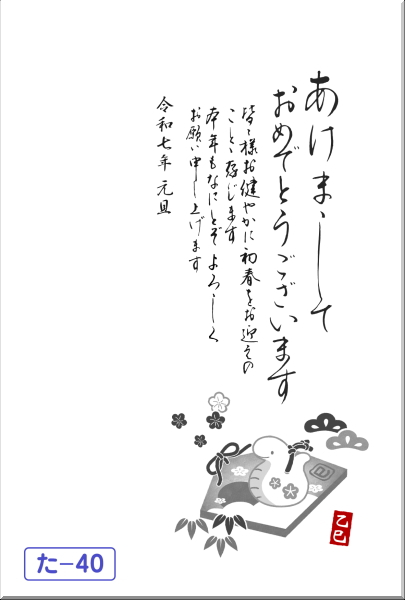 あけまして
おめでとうございます
皆々様お健やかに初春をお迎えの
ことゝ存じます
本年もなにとぞよろしく
お願い申し上げます
令和七年 元旦
乙巳
た-40